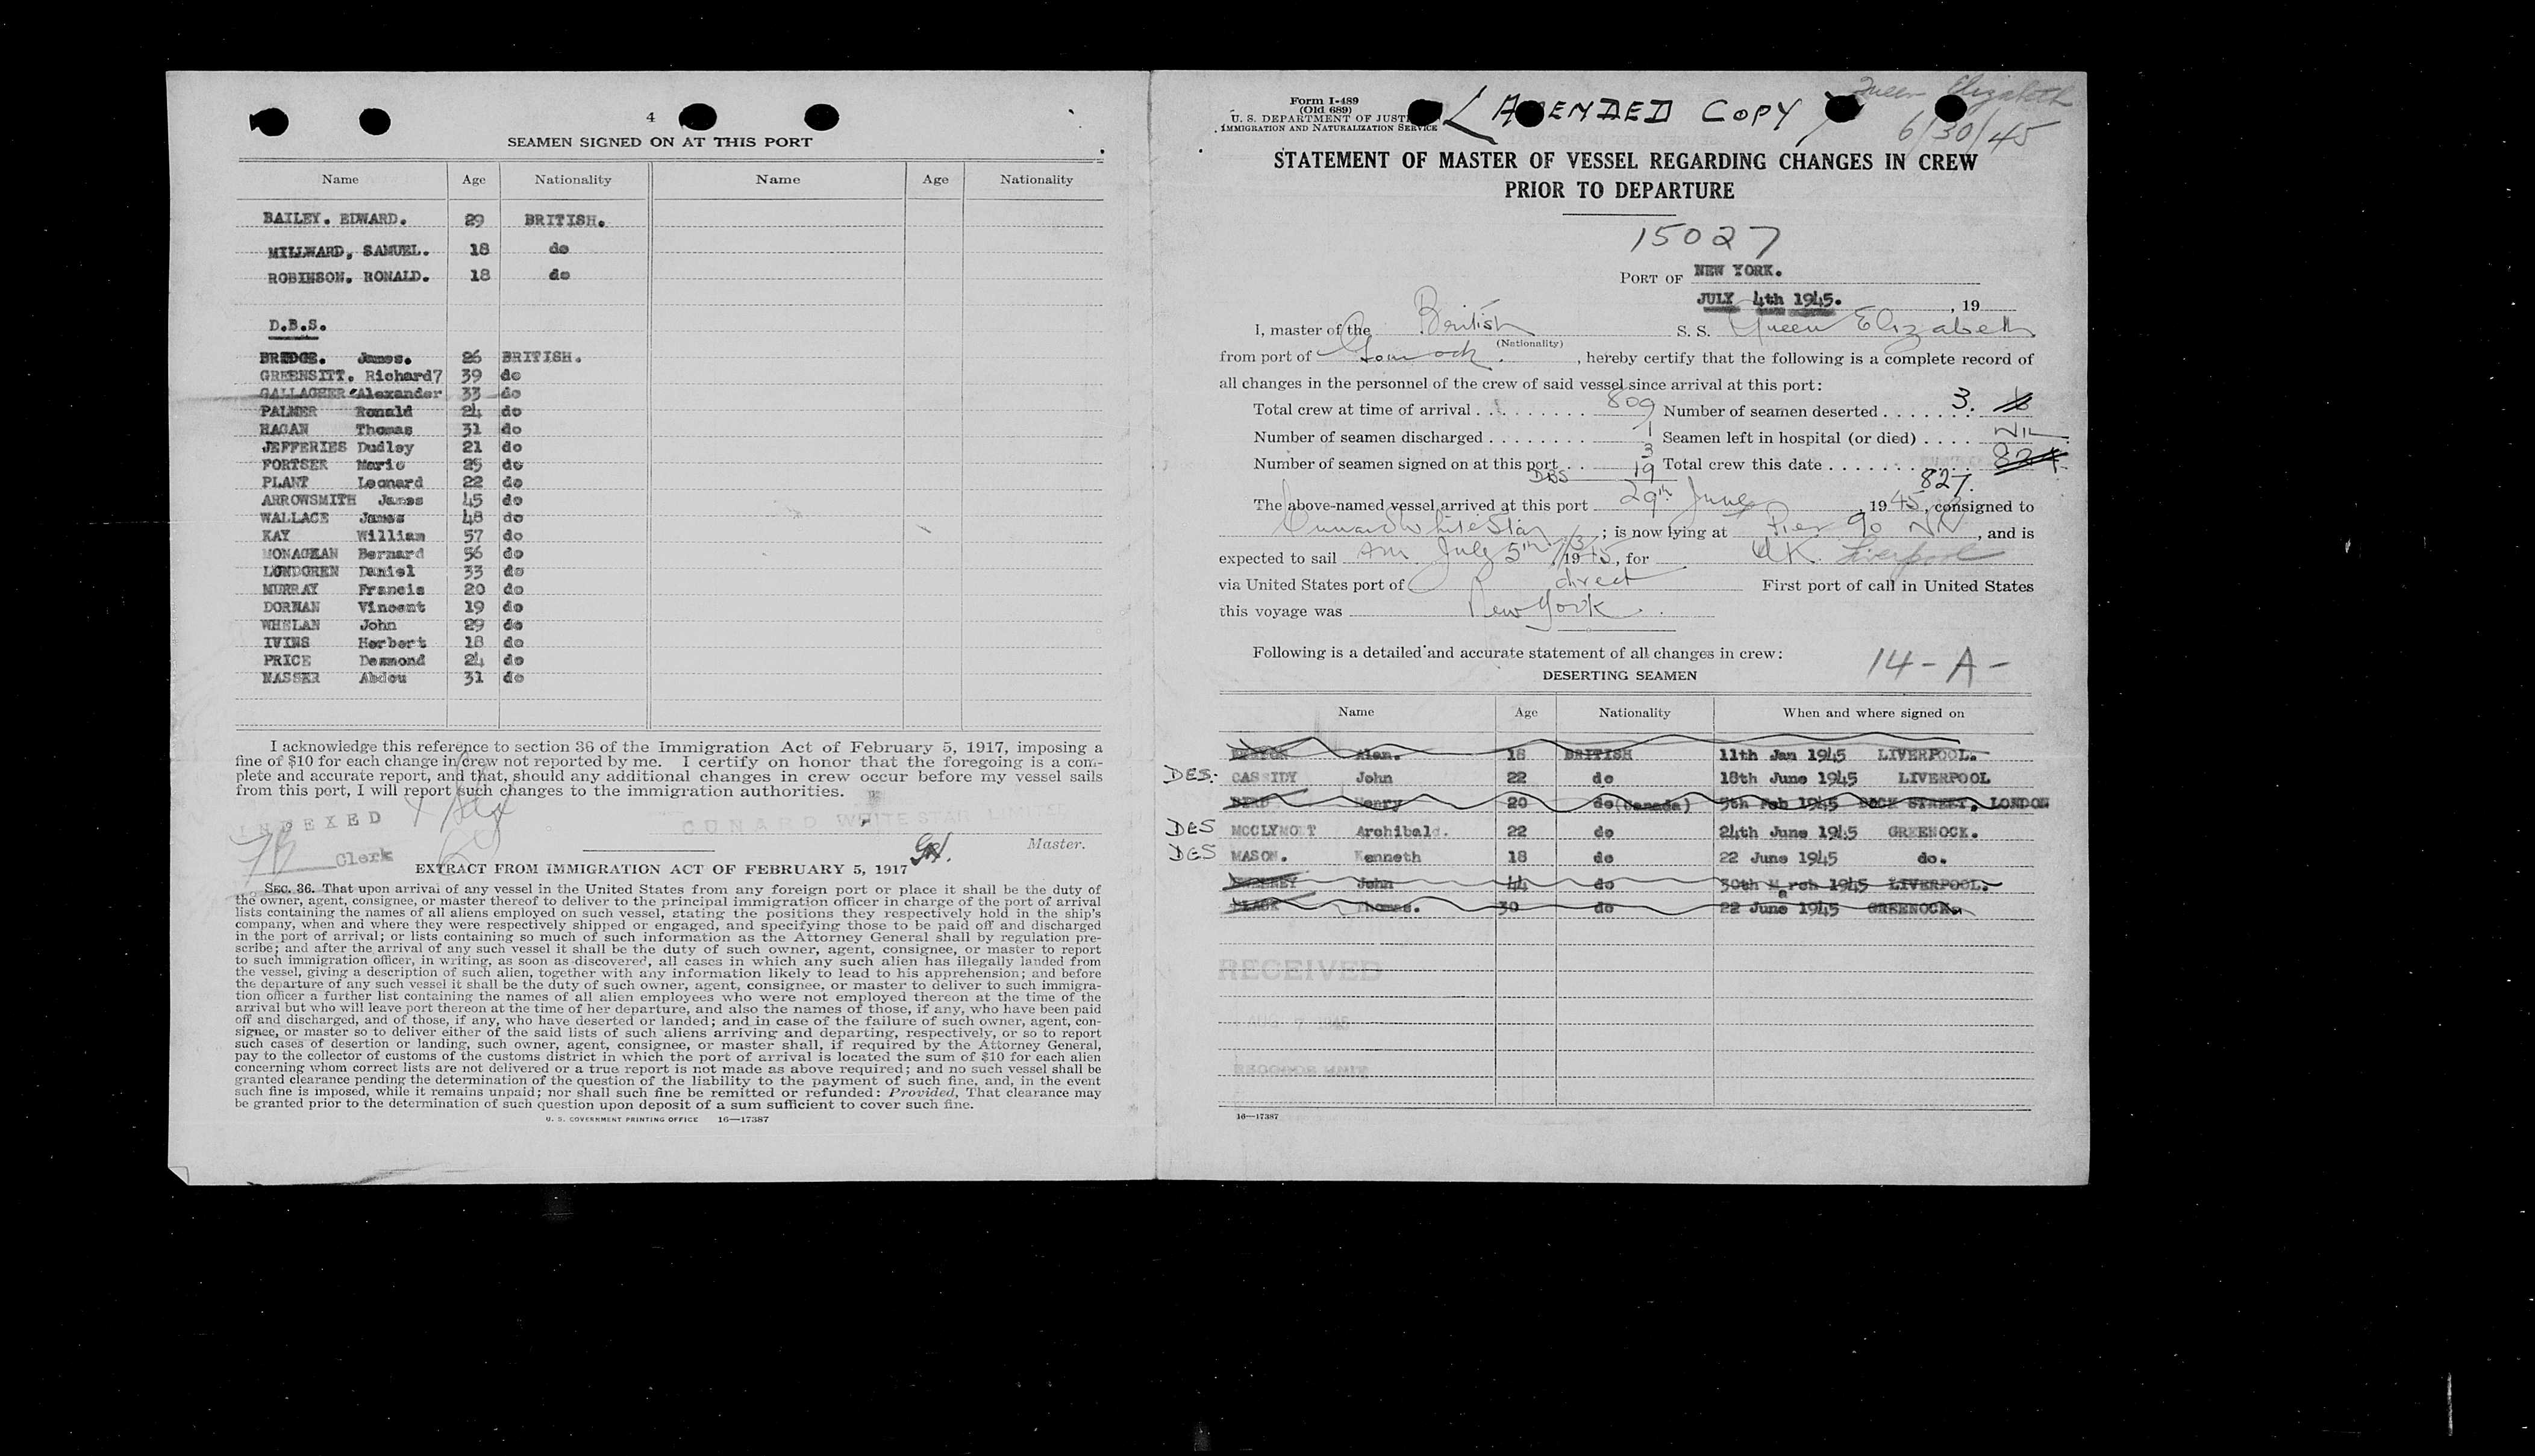 4
SEAMEN SIGNED ON AT THIS PORT
Name Age Nationality Name Age Nationality
BAILEY. EDWARD. 29 BRITISH.
MILLWARD, SAMUEL. 18 do
ROBINSON. RONALD. 18 do
D.B.S.
BREDGE. James. 26 BRITISH.
GREENSITT. Richard7 39 do
GALLAGHER Alexander 33 do
PALMER Ronald 24 do
HAGAN Thomas 31 do
JEFFERIES Dudley 21 do
FORTSER Mario 25 do
PLANT Leonard 22 do
ARROWSMITH James 45 do
WALLACE James 48 do
KAY William 57 do
MONAGHAN Bernard 56 do
LUNDGREN Daniel 33 do
MURRAY Francis 20 do
DORNAN Vincent 19 do
WHELAN John 29 do
IVINS Herbert 18 do
PRICE Desmond 24 do
NASSER Abdou 31 do
I acknowledge this reference to section 36 of the Immigration Act of February 5, 1917, imposing a
fine of $10 for each change in crew not reported by me. I certify on honor that the foregoing is a com-
plete and accurate report, and that, should any additional changes in crew occur before my vessel sails
from this port, I will report such changes to the immigration authorities.
INDEXED
CUNARD WHITE STAR LIMITED
Clerk
Master.
EXTRACT FROM IMMIGRATION ACT OF FEBRUARY 5, 1917
SEC. 36. That upon arrival of any vessel in the United States from any foreign port or place it shall be the duty of
the owner, agent, consignee, or master thereof to deliver to the principal immigration officer in charge of the port of arrival
lists containing the names of all aliens employed on such vessel, stating the positions they respectively hold in the ship's
company, when and where they were respectively shipped or engaged, and specifying those to be paid off and discharged
in the port of arrival; or lists containing so much of such information as the Attorney General shall by regulation pre-
scribe; and after the arrival of any such vessel it shall be the duty of such owner, agent, consignee, or master to report
to such immigration officer, in writing, as soon as discovered, all cases in which any such alien has illegally landed from
the vessel, giving a description of such alien, together with any information likely to lead to his apprehension; and before
the departure of any such vessel it shall be the duty of such owner, agent, consignee, or master to deliver to such immigra-
tion officer a further list containing the names of all alien employees who were not employed thereon at the time of the
arrival but who will leave port thereon at the time of her departure, and also the names of those, if any, who have been paid
off and discharged, and of those, if any, who have deserted or landed; and in case of the failure of such owner, agent, con-
signee, or master so to deliver either of the said lists of such aliens arriving and departing, respectively, or so to report
such cases of desertion or landing, such owner, agent, consignee, or master shall, if required by the Attorney General,
pay to the collector of customs of the customs district in which the port of arrival is located the sum of $10 for each alien
concerning whom correct lists are not delivered or a true report is not made as above required; and no such vessel shall be
granted clearance pending the determination of the question of the liability to the payment of such fine, and, in the event
such fine is imposed, while it remains unpaid; nor shall such fine be remitted or refunded: Provided, That clearance may
be granted prior to the determination of such question upon deposit of a sum sufficient to cover such fine.
U. S. GOVERNMENT PRINTING OFFICE 16—17387
Form I-489
(Old 689)
U. S. DEPARTMENT OF JUSTICE
IMMIGRATION AND NATURALIZATION SERVICE
AMENDED COPY
Queen Elizabeth
6/30/45
STATEMENT OF MASTER OF VESSEL REGARDING CHANGES IN CREW
PRIOR TO DEPARTURE
15027
PORT OF NEW YORK.
JULY 4th 1945. , 19
I, master of the British S. S. Queen Elizabeth
(Nationality)
from port of Gourock , hereby certify that the following is a complete record of
all changes in the personnel of the crew of said vessel since arrival at this port:
Total crew at time of arrival 809 Number of seamen deserted 3.
Number of seamen discharged 1 Seamen left in hospital (or died) NIL
Number of seamen signed on at this port 3 Total crew this date 824
DBS 19 827
The above-named vessel arrived at this port 29th June, 1945, consigned to
Cunard White Star ; is now lying at Pier 90 NR , and is
expected to sail AM July 5th 1945, for UK. Liverpool
via United States port of direct First port of call in United States
this voyage was New York.
Following is a detailed and accurate statement of all changes in crew:
14-A-
DESERTING SEAMEN
Name Age Nationality When and where signed on
Alan. 18 BRITISH 11th Jan 1945 LIVERPOOL.
DES. CASSIDY John 22 do 18th June 1945 LIVERPOOL
Henry 20 do (Canada) 5th Feb 1945 DOCK STREET, LONDON
DES MCCLYMONT Archibald. 22 do 24th June 1945 GREENOCK.
DES MASON. Kenneth 18 do 22 June 1945 do.
John 44 do 30th March 1945 LIVERPOOL.
BLACK Thomas. 30 do 22 June 1945 GREENOCK.
RECEIVED
AUG 7 1945
RECORDS UNIT
16—17387